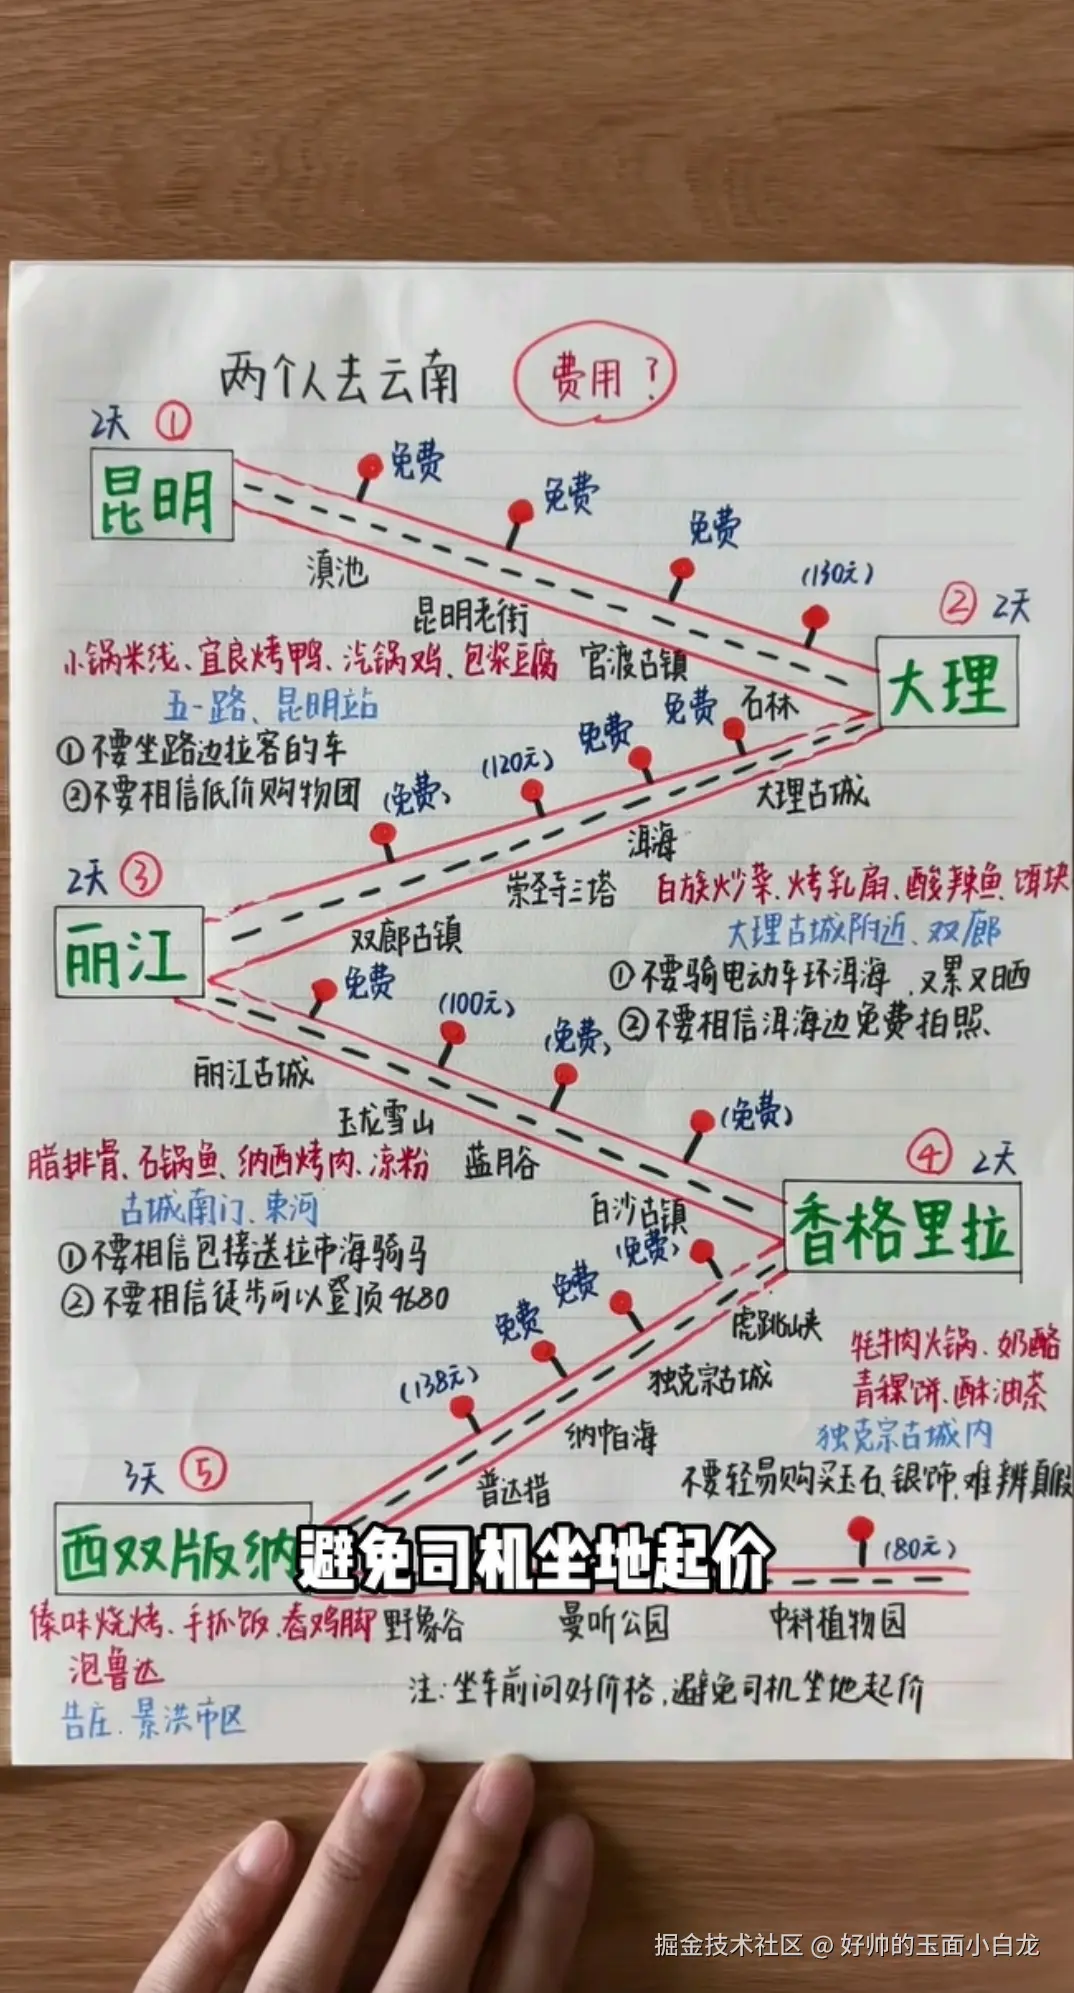 两个人去云南 费用？
2天 ①
昆明
免费
免费
免费
(130元)
滇池
昆明老街
官渡古镇
石林
小锅米线、宜良烤鸭、汽锅鸡、包浆豆腐
五一路、昆明站
①不要坐路边拉客的车
②不要相信低价购物团
② 2天
大理
免费
免费
(120元)
(免费)
大理古城
洱海
崇圣寺三塔
双廊古镇
白族炒菜、烤乳扇、酸辣鱼、饵块
大理古城附近、双廊
①不要骑电动车环洱海，又累又晒
②不要相信洱海边免费拍照、
2天 ③
丽江
免费
(100元)
(免费)
(免费)
丽江古城
玉龙雪山
蓝月谷
白沙古镇
腊排骨、石锅鱼、纳西烤肉、凉粉
古城南门、束河
①不要相信包接送拉市海骑马
②不要相信徒步可以登顶4680
④ 2天
香格里拉
(免费)
免费
免费
(138元)
虎跳峡
独克宗古城
纳帕海
普达措
牦牛肉火锅、奶酪
青稞饼、酥油茶
独克宗古城内
不要轻易购买玉石、银饰、难辨真假
3天 ⑤
西双版纳
避免司机坐地起价
(80元)
野象谷
曼听公园
中科植物园
傣味烧烤、手抓饭、舂鸡脚
泡鲁达
告庄、景洪市区
注:坐车前问好价格,避免司机坐地起价
掘金技术社区 @ 好帅的玉面小白龙